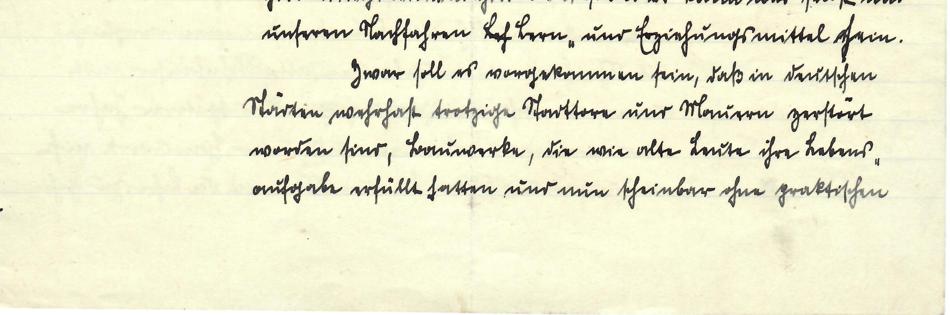 unseren Nachfahren Lern- und Erziehungsmittel sein.
Zwar soll es vorgekommen sein, daß in deutschen
Städten wehrhaft trotzige Stadttore und Mauern zerstört
worden sind, Bauwerke, die wie alte Leute ihre Lebens-
aufgabe erfüllt hatten und nun scheinbar ohne praktischen